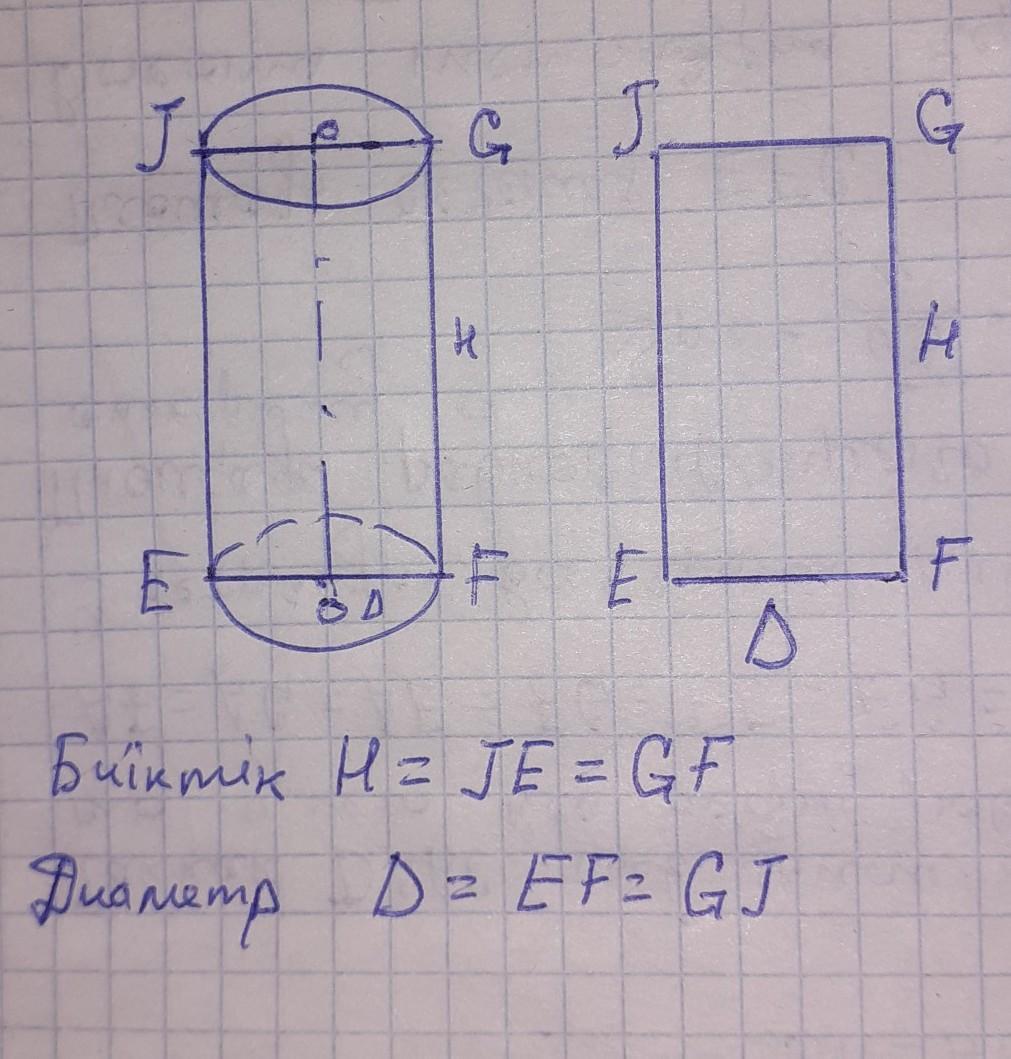 J O G
H
E O D F
J G
H
E F
D
Биіктік H = JE = GF
Диаметр D = EF = GJ